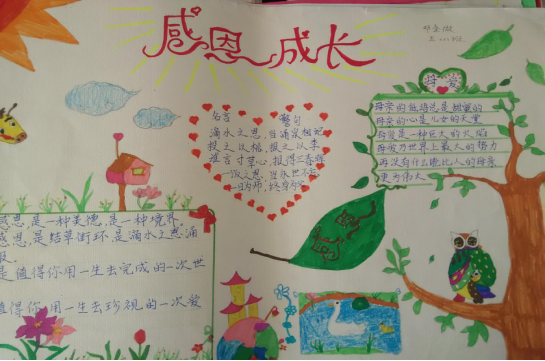 感恩 成长
母爱
名言 警句
滴水之恩,当涌泉相报
投之以桃,报之以李
谁言寸草心,报得三春晖
一饭之恩,当永世不忘
一日为师,终身为父
母亲的低语总是甜蜜的
母亲的心是儿女的天堂
母爱是一种巨大的火焰
母爱乃世界上最大的势力
再没有什么能比人的母亲
更为伟大
感恩
感恩是一种美德,是一种境界
感恩,是结草衔环,是滴水之恩涌
报
是值得你用一生去完成的一次世
值得你用一生去珍视的一次爱